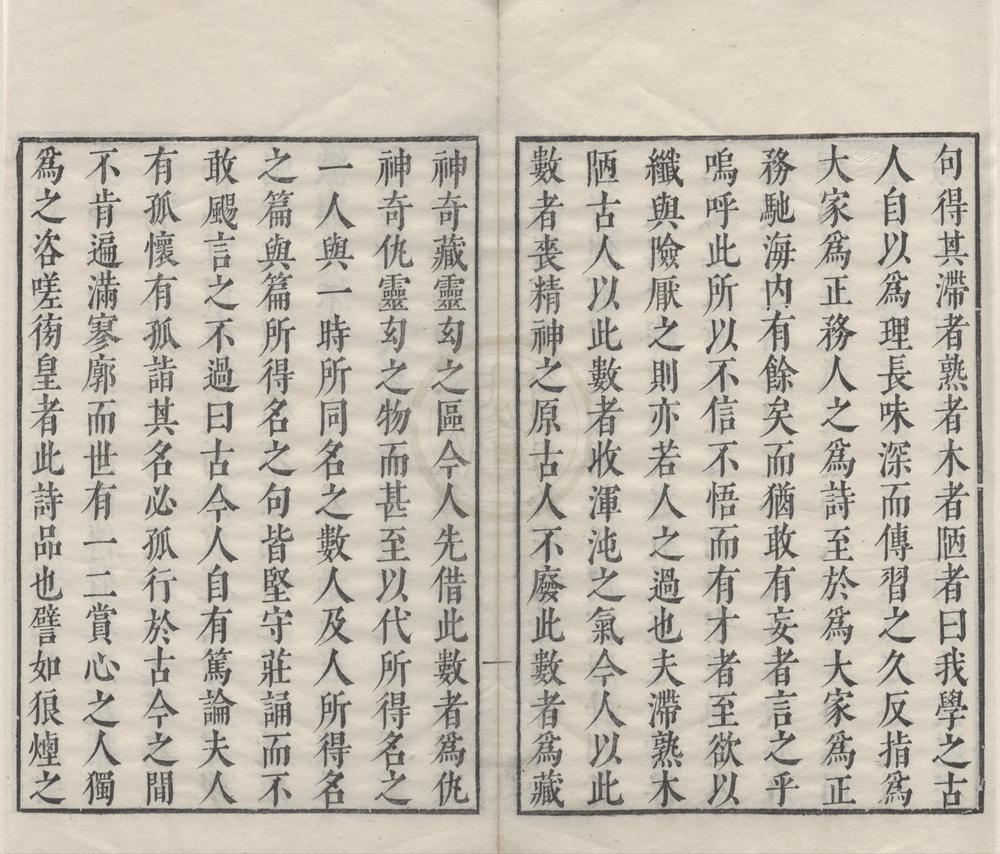 句得其滯者熟者木者陋者曰我學之古
人自以爲理長味深而傳習之久反指爲
大家爲正務人之爲詩至於爲大家爲正
務馳海內有餘矣而猶敢有妄者言之乎
嗚呼此所以不信不悟而有才者至欲以
纖與險厭之則亦若人之過也夫滯熟木
陋古人以此數者收渾沌之氣今人以此
數者喪精神之原古人不廢此數者爲藏
神奇藏靈幻之區今人先借此數者爲仇
神奇仇靈幻之物而甚至以代所得名之
一人與一時所同名之數人及人所得名
之篇與篇所得名之句皆堅守莊誦而不
敢颺言之不過曰古今人自有篤論夫人
有孤懷有孤詣其名必孤行於古今之間
不肯遍滿寥廓而世有一二賞心之人獨
爲之咨嗟徬皇者此詩品也譬如狼煙之
一